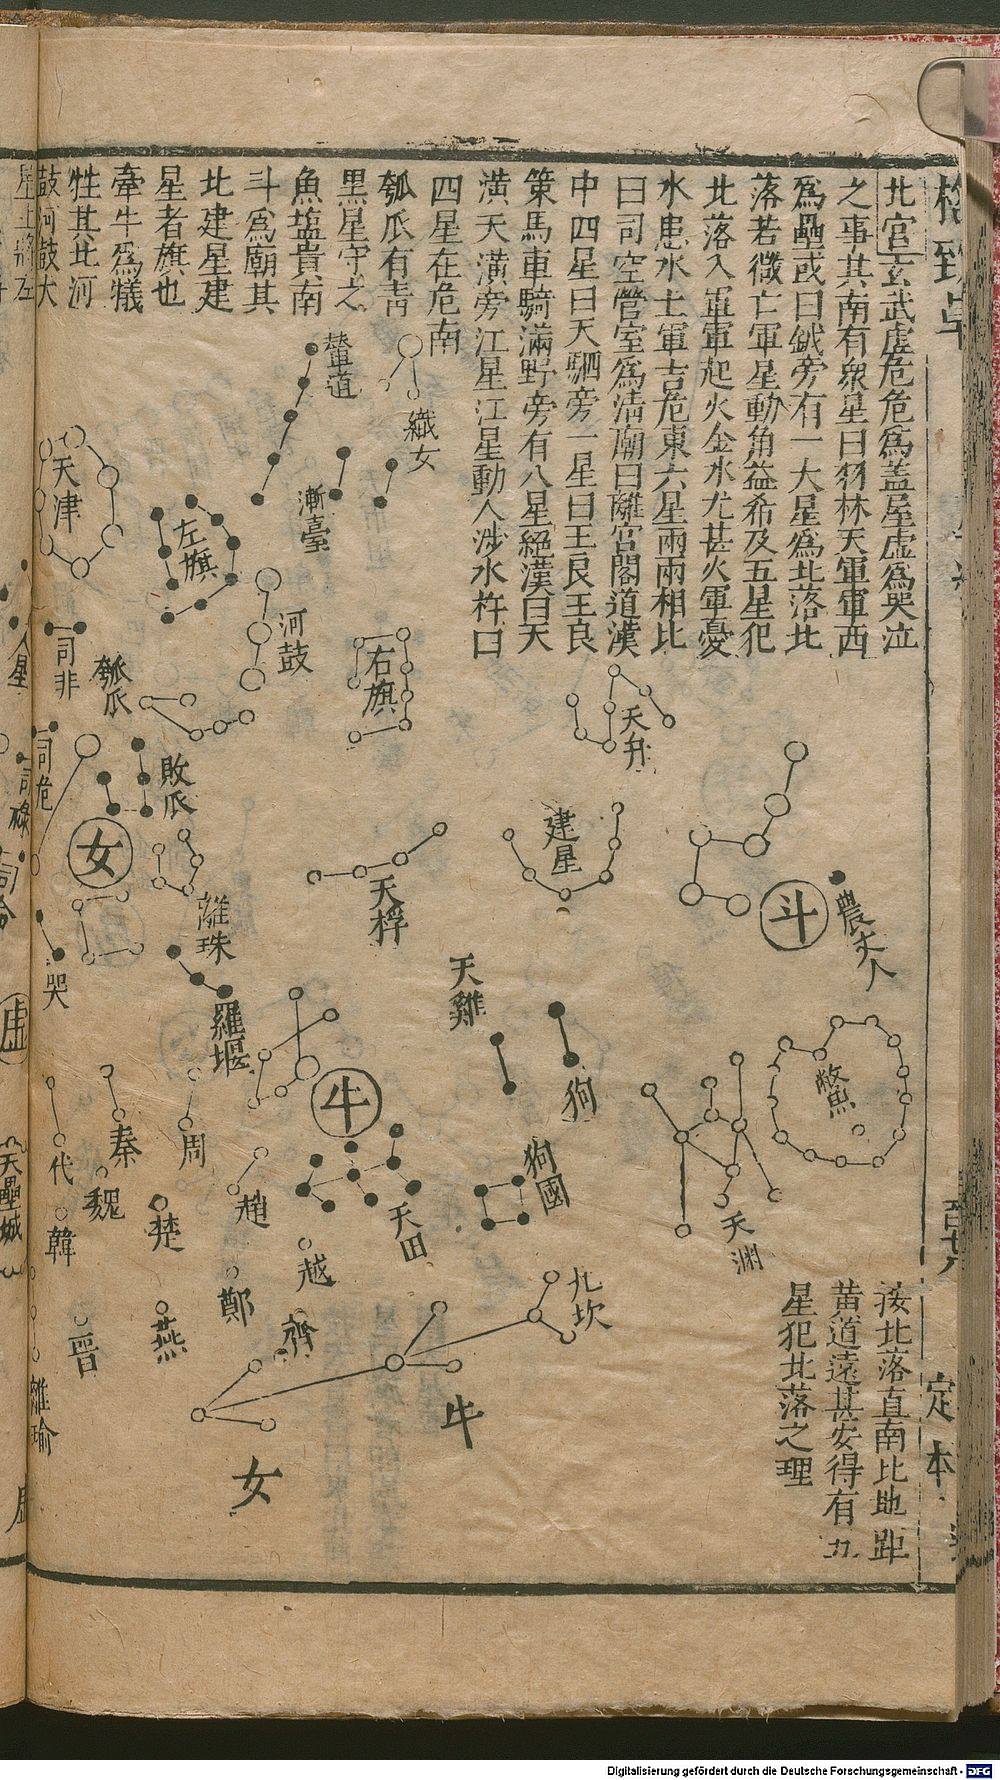 格致草
北宫玄武虚危危爲盖屋虚爲哭泣
之事其南有衆星曰羽林天軍軍西
爲壘或曰鉞旁有一大星爲北落北
落若微亡軍星動角益希及五星犯
北落入軍軍起火金水尤甚火軍憂
水患水土軍吉危東六星兩兩相比
曰司空營室爲清廟曰離宫閣道漢
中四星曰天駟旁一星曰王良王良
策馬車騎滿野旁有八星絕漢曰天
潢天潢旁江星江星動人涉水杵臼
四星在危南
瓠瓜有青
黒星守之
魚塩貴南
斗爲廟其
北建星建
星者旗也
牽牛爲犧
牲其北河
鼓河鼓大
星上將左
輦道
織女
漸臺
天津
左旗
河鼓
右旗
司非
人星
瓠瓜
天弁
司危
司祿
敗瓜
建星
女
離珠
天桴
斗
農丈人
哭
天雞
虚
羅堰
狗
鱉
牛
代
秦
周
狗國
天壘城
韓
魏
楚
趙
天田
天渊
越
鄭
九坎
晋
燕
齊
離瑜
牛
女
按北落直南比地距
黄道遠甚安得有五
星犯北落之理
定本
Digitalisierung gefördert durch die Deutsche Forschungsgemeinschaft - DFG